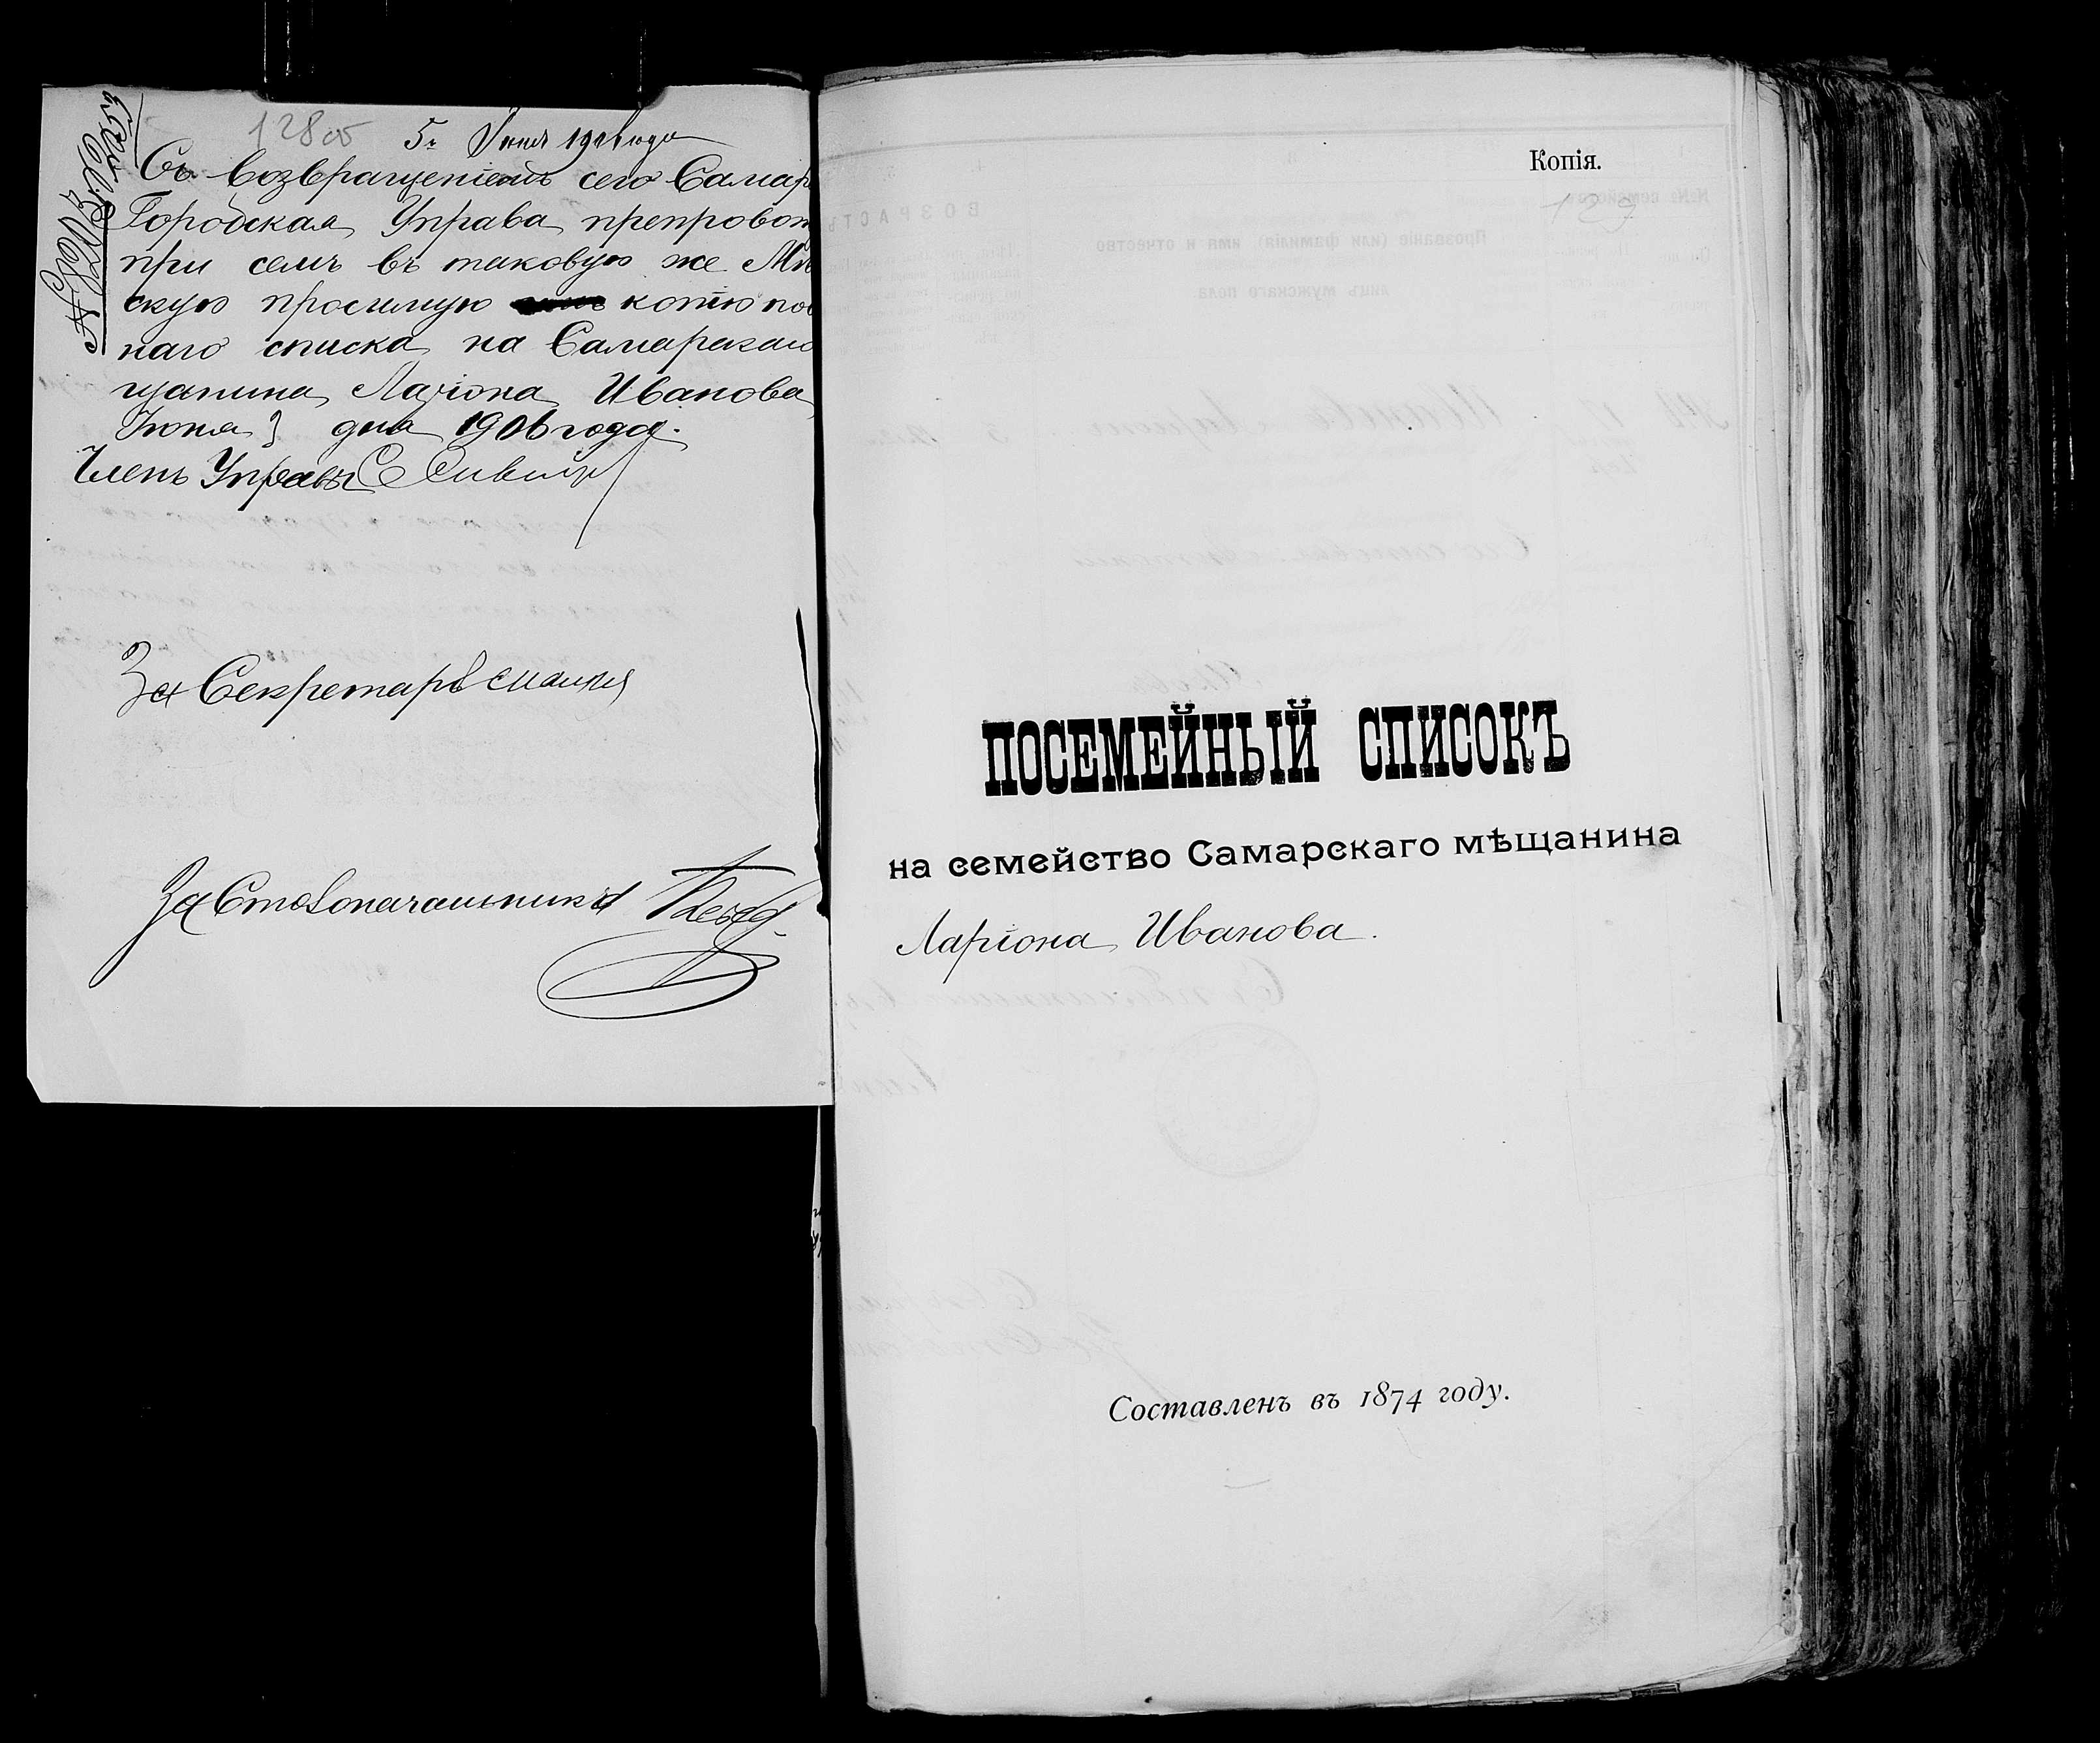 128об
5го Июня 1906 года
Съ возвращеніемъ сего Самар
Городская Управа препровож
при семъ въ таковую же Мѣ
скую просимую копію посе
наго списка на Самарскаго
щанина Ларіона Иванова
Июня 3 дня 1906 года.
Членъ Управы
За Секретаря
За Столоначальника
Копія.
129
ПОСЕМЕЙНЫЙ СПИСОКЪ
на семейство Самарскаго мѣщанина
Ларіона Иванова.
Составленъ въ 1874 году.